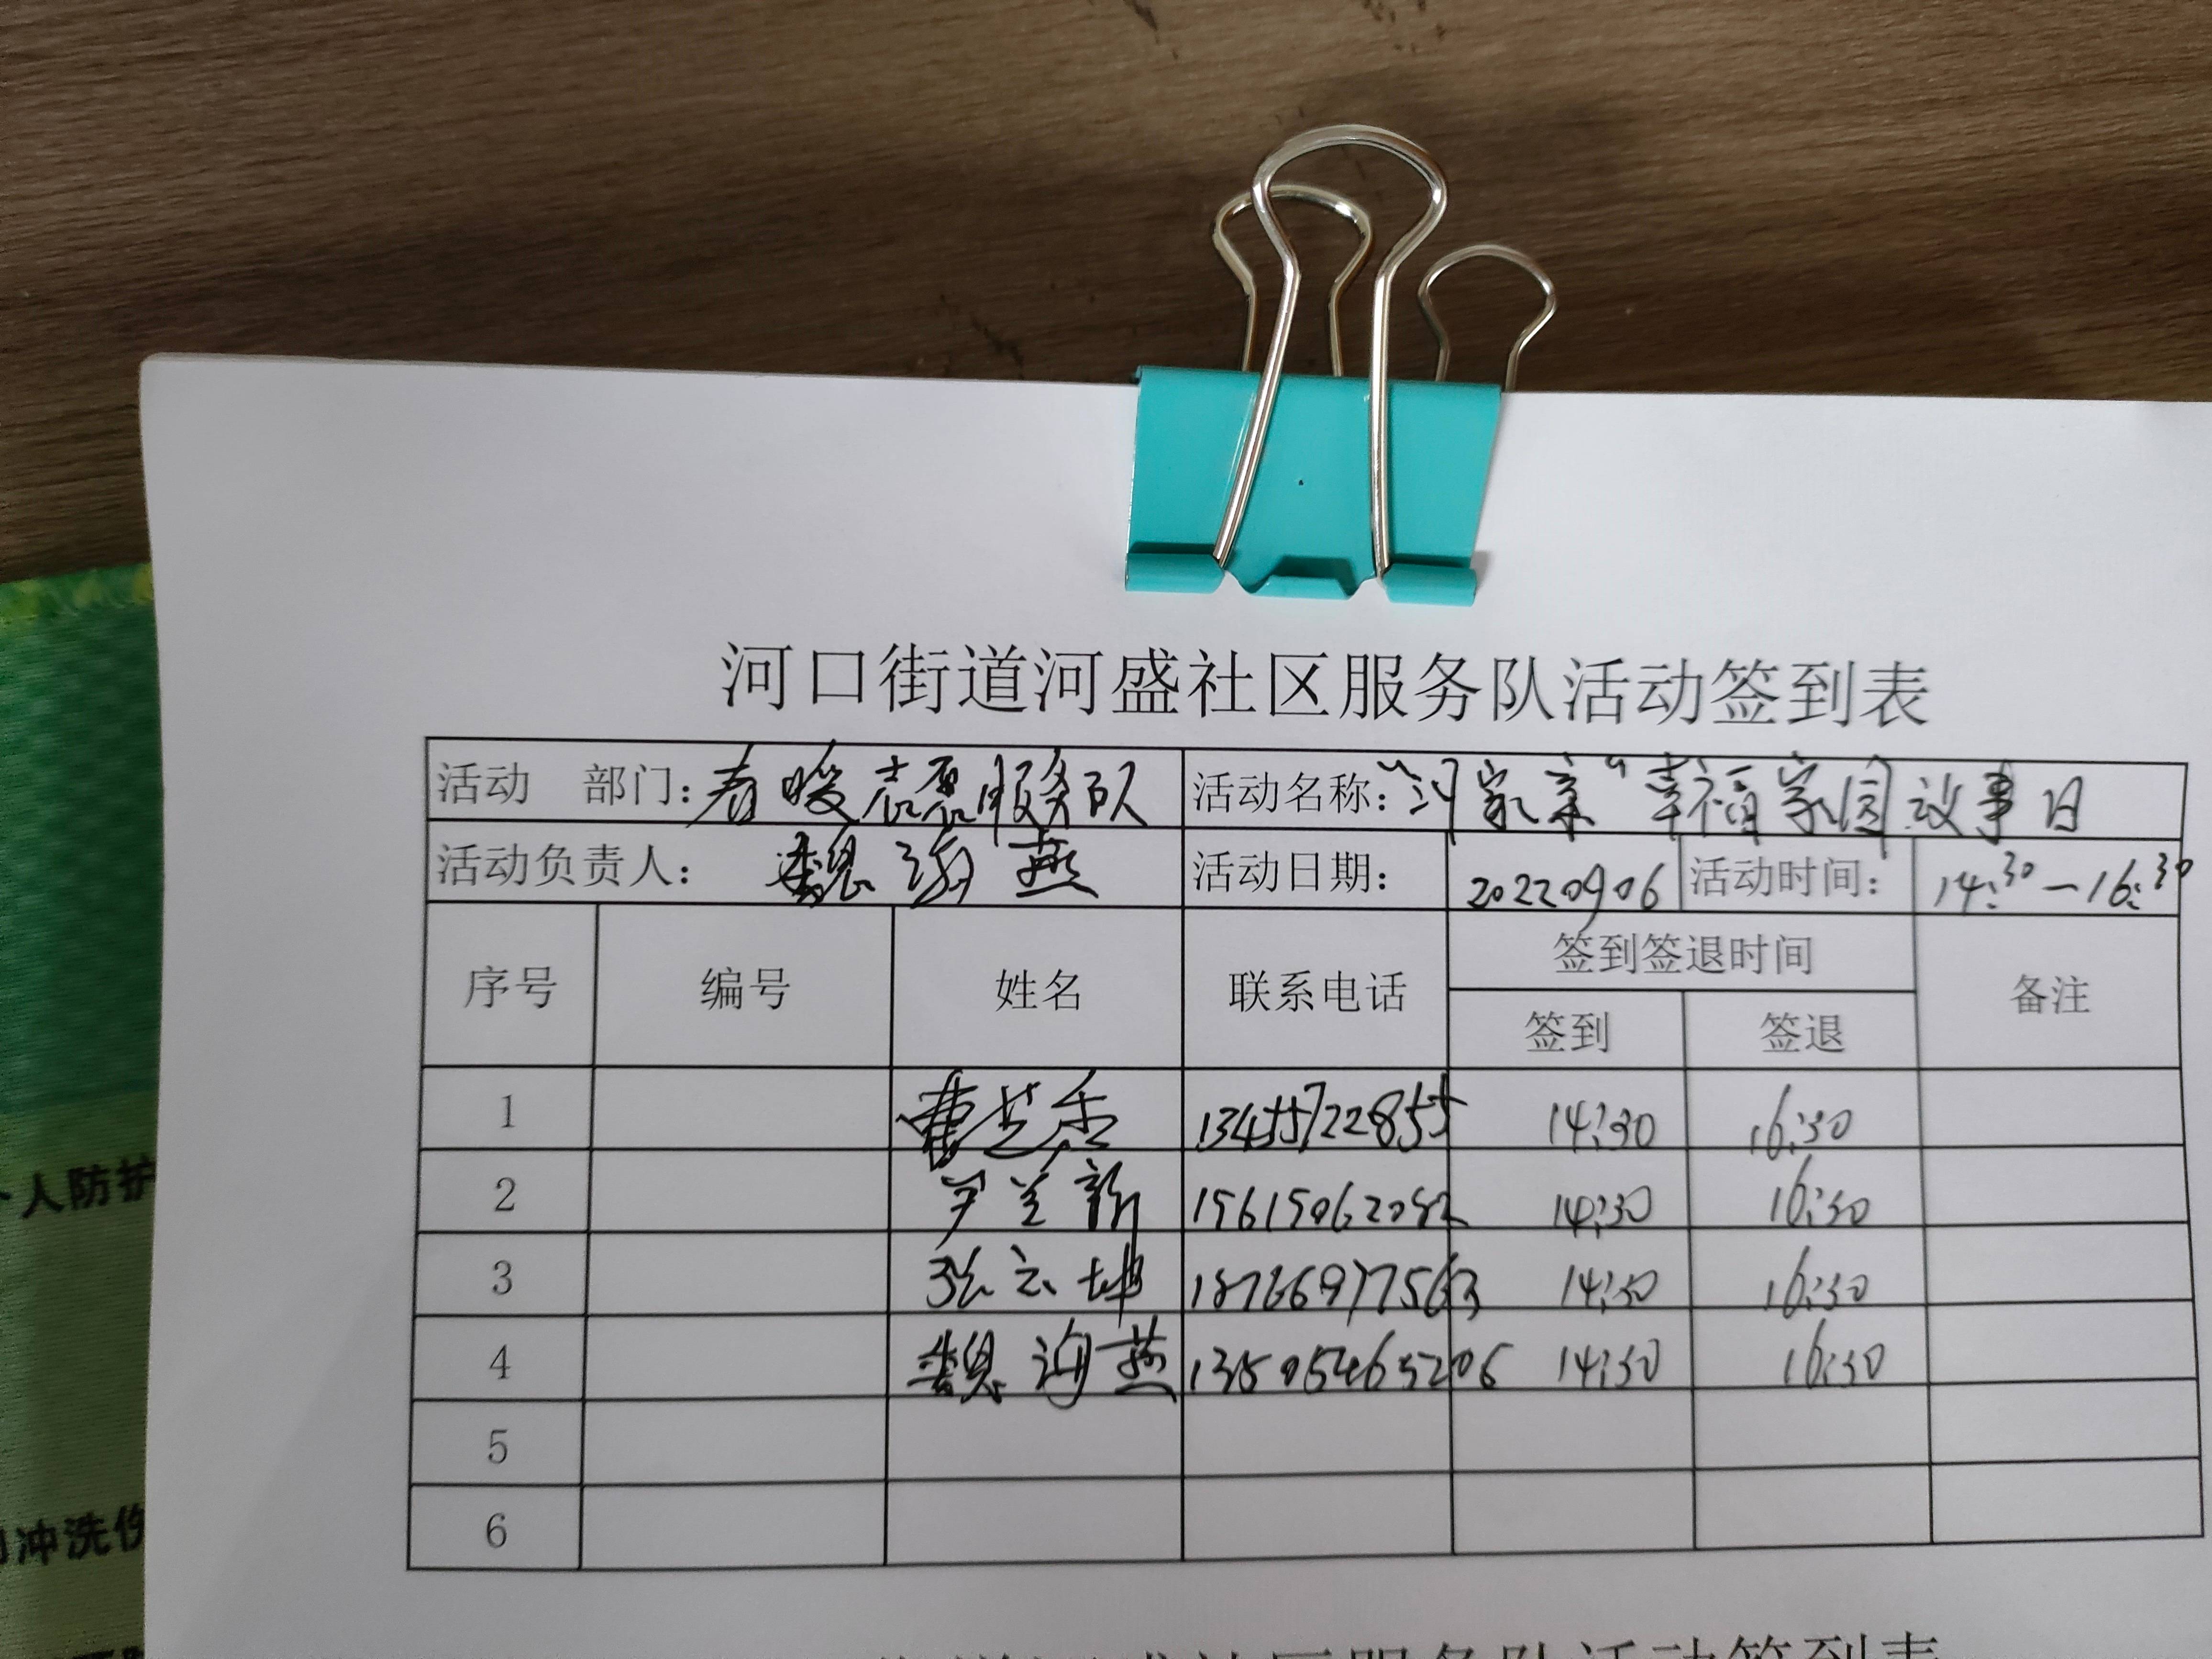 河口街道河盛社区服务队活动签到表
活动 部门：春暖志愿服务队 活动名称：“河家亲”幸福家园故事日
活动负责人： 魏海燕 活动日期： 20220906 活动时间： 14:30—16:30
序号 编号 姓名 联系电话 签到签退时间 备注
签到 签退
1 13455722855 14:30 16:30
2 尹兰新 14:30 16:30
3 张云坤 18766977563 14:30 16:30
4 魏海燕 14:30 16:30
5
6
人防护
冲洗伤
社区服务队活动签到表